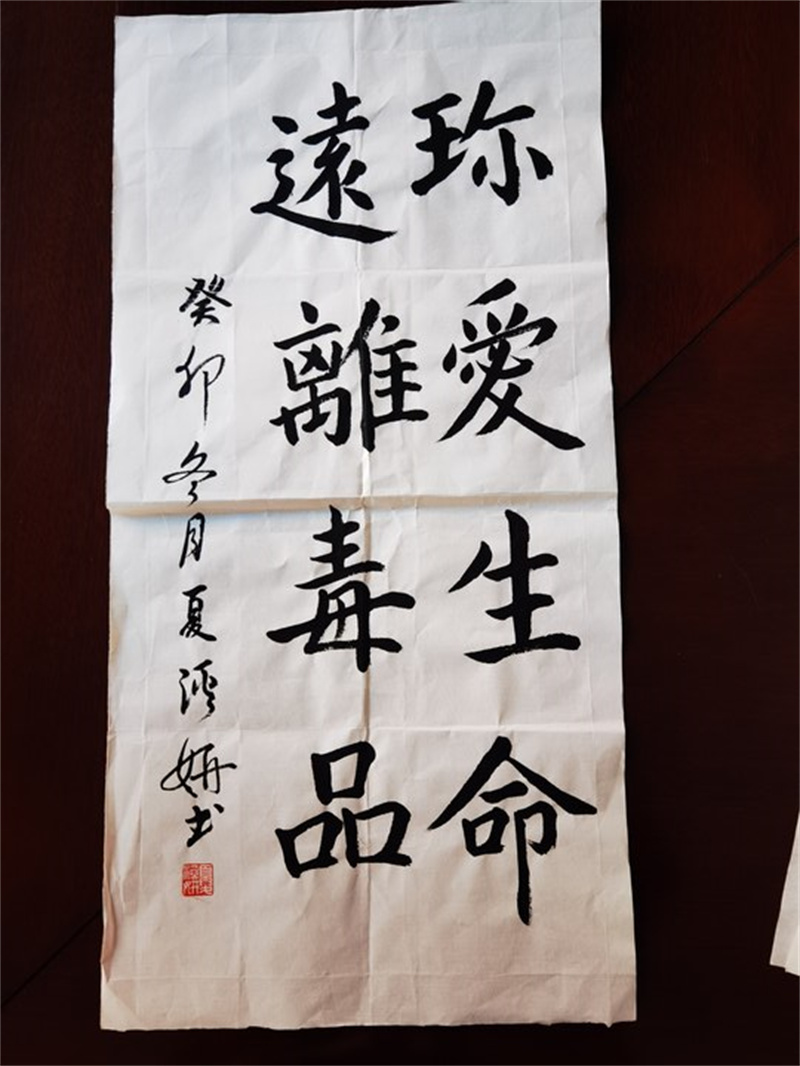 珎愛生命
遠離毒品
癸卯冬月夏
妍书